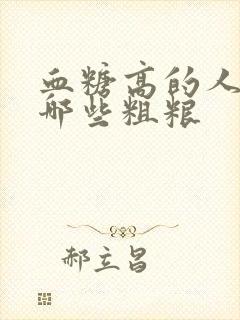 血糖高的人
哪些粗粮
郝立昌